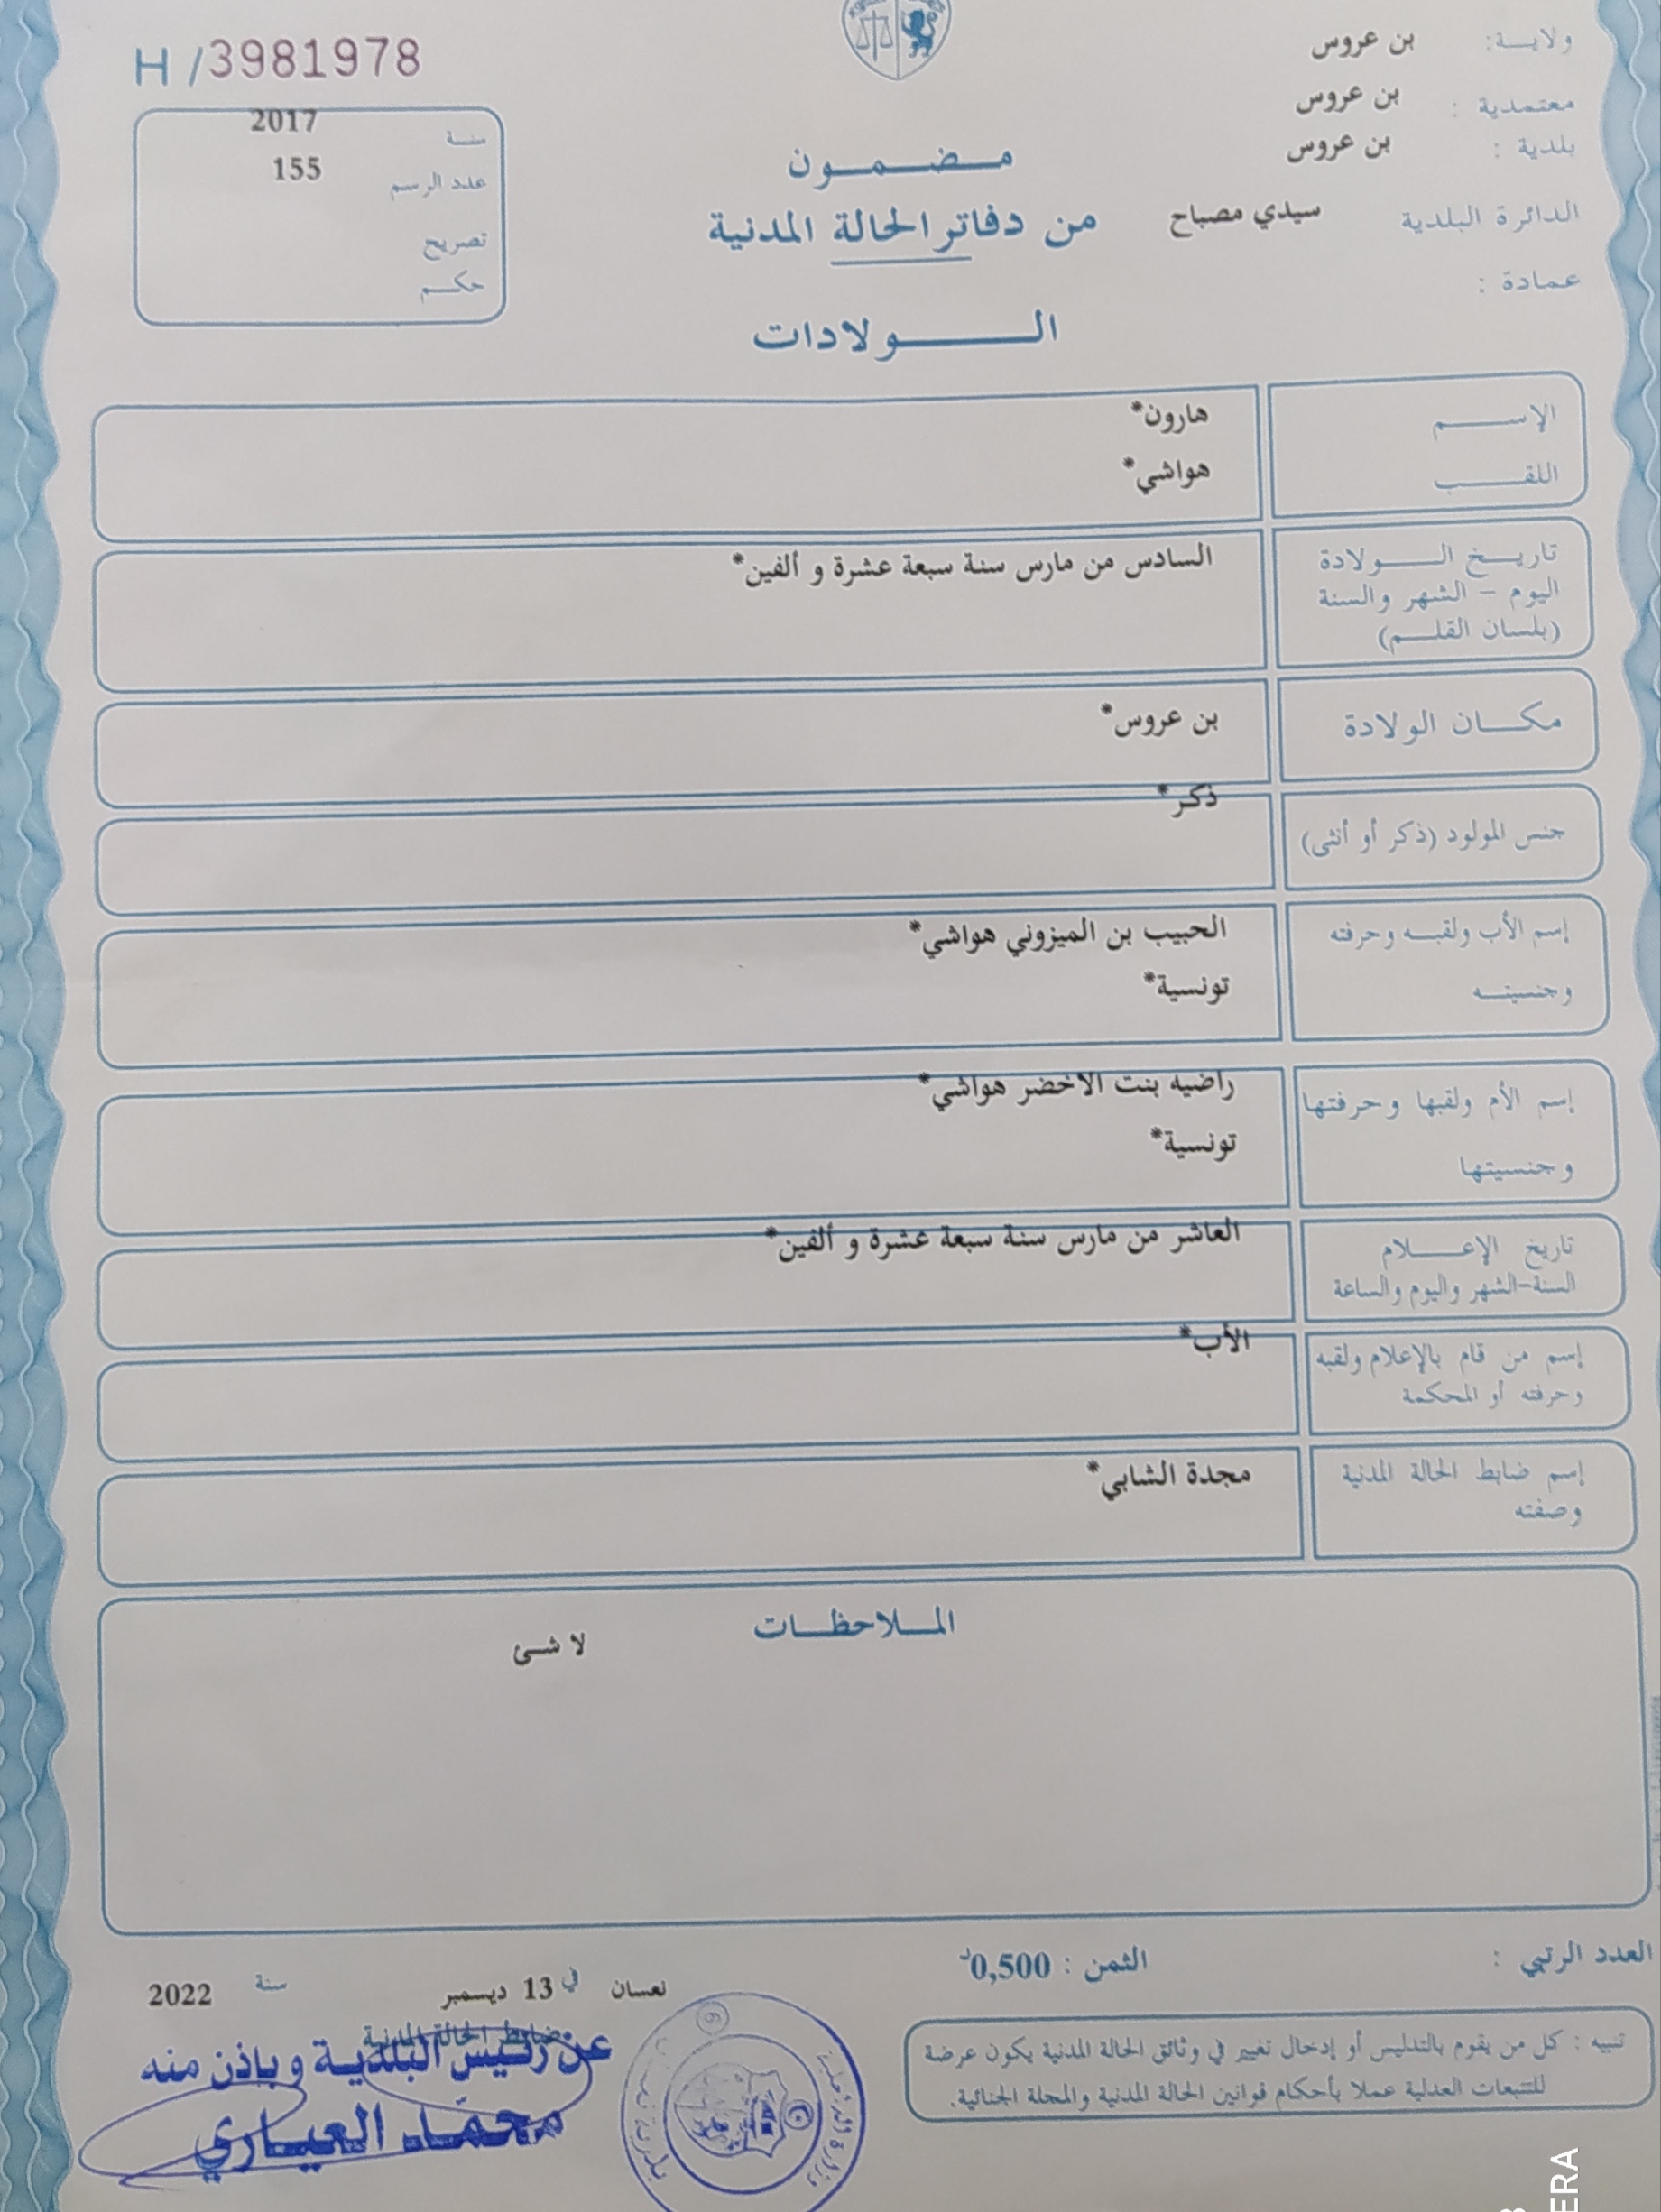 H/3981978
ولايــة: بن عروس
معتمدية : بن عروس
بلدية : بن عروس
الدائرة البلدية سيدي مصباح
عمادة :
سنة 2017
عدد الرسم 155
تصريح
حكم
مضمون
من دفاتر الحالة المدنية
الولادات
الإسم هارون*
اللقب هواشي*
تاريخ الولادة السادس من مارس سنة سبعة عشرة و ألفين*
اليوم - الشهر والسنة
(بلسان القلم)
مكان الولادة بن عروس*
جنس المولود (ذكر أو أنثى) ذكر*
إسم الأب ولقبه وحرفته الحبيب بن الميزوني هواشي*
وجنسيته تونسية*
إسم الأم ولقبها وحرفتها راضيه بنت الاخضر هواشي*
وجنسيتها تونسية*
تاريخ الإعلام العاشر من مارس سنة سبعة عشرة و ألفين*
السنة-الشهر واليوم والساعة
إسم من قام بالإعلام ولقبه الأب*
وحرفته أو المحكمة
إسم ضابط الحالة المدنية مجدة الشابي*
وصفته
الملاحظات
لا شئ
العدد الرتبي :
الثمن : 0,500د
نعسان في 13 ديسمبر سنة 2022
ضابط الحالة المدنية
عن رئيس البلدية وباذن منه
محمّد العياري
تنبيه : كل من يقوم بالتدليس أو إدخال تغيير في وثائق الحالة المدنية يكون عرضة
للتتبعات العدلية عملا بأحكام قوانين الحالة المدنية والمجلة الجنائية.